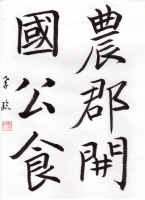 農郡開
國公食